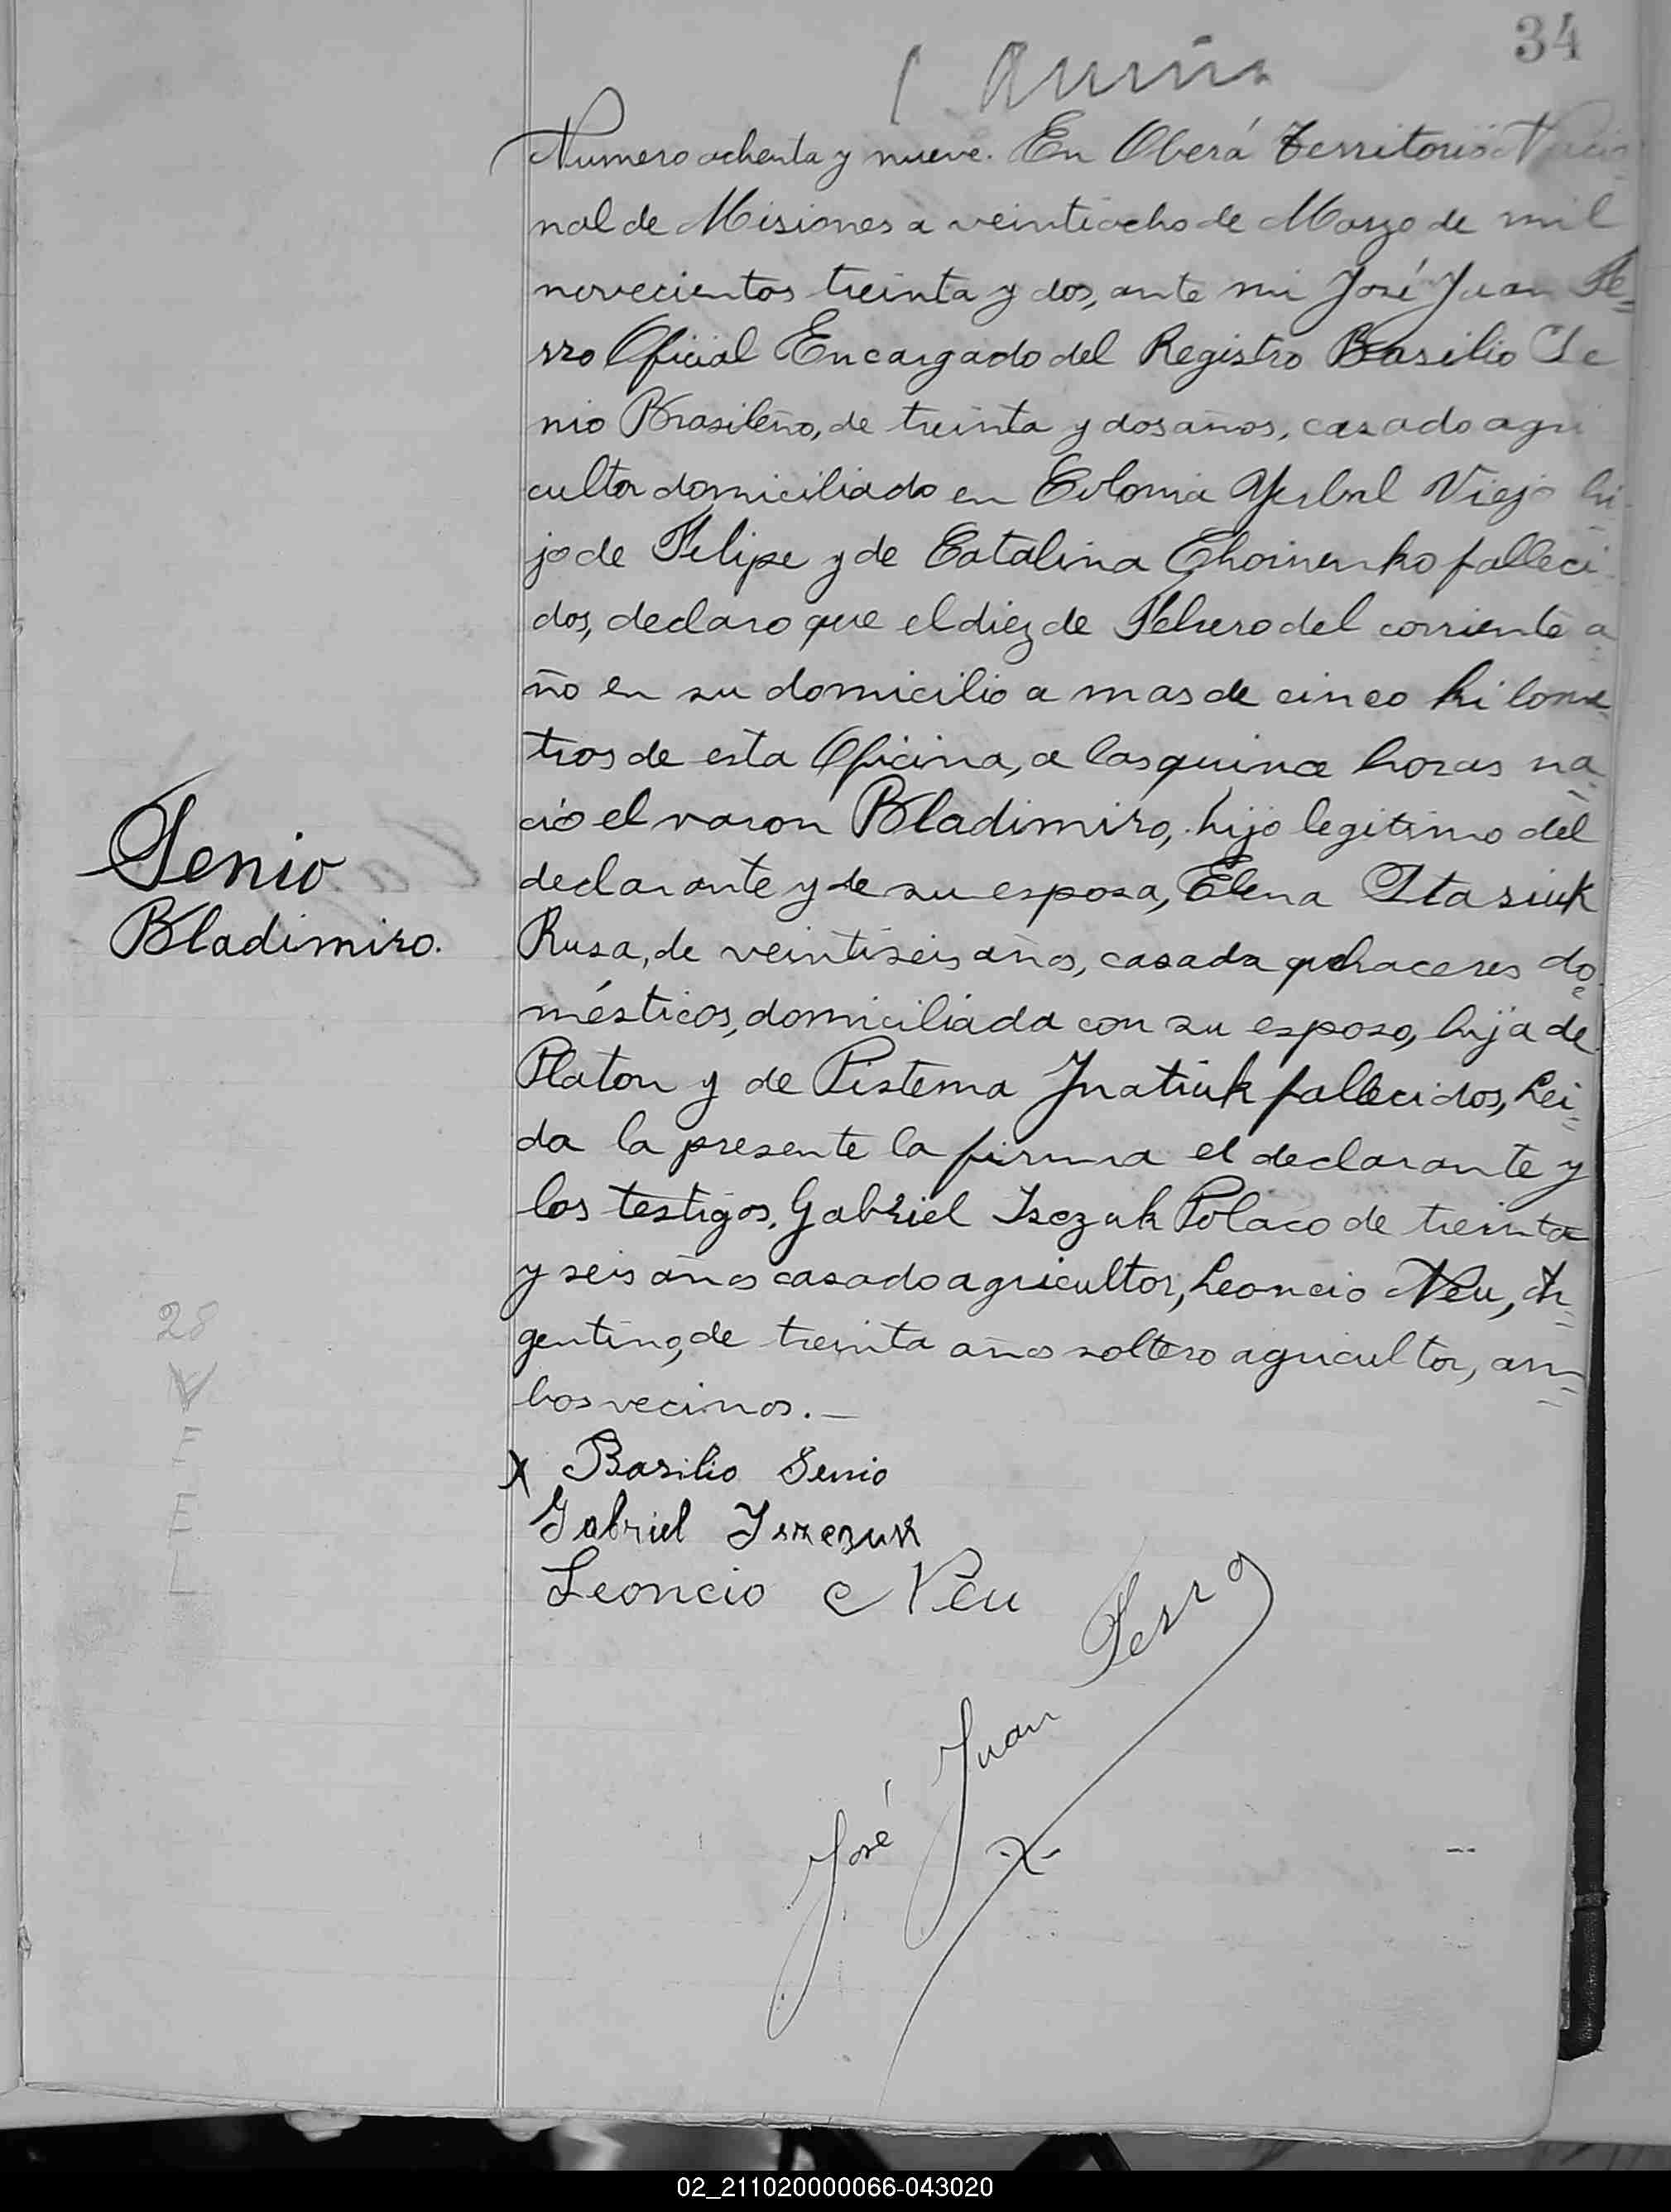 34
Numero ochenta y nueve. En Oberá Territorio Nacio-
nal de Misiones a veintiocho de Marzo de mil
novecientos treinta y dos, ante mi José Juan Fe=
rro Oficial Encargado del Registro Basilio Se
nio Brasileño, de treinta y dos años, casado agri
cultor domiciliado en Colonia Yerbal Viejo hi-
jo de Felipe y de Catalina Choinenko falleci-
dos, declaro que el diez de Febrero del corriente a=
ño en su domicilio a mas de cinco kilome=
tros de esta Oficina, a las quince horas na=
ció el varon Bladimiro, hijo legitimo del
Senio
Bladimiro.
declarante y de su esposa, Elena Stasiuk
Rusa, de veintiseis años, casada quehaceres do=
mésticos, domiciliada con su esposo, hija de
Platon y de Pistema Jnatiuk fallecidos, Lei=
da la presente la firma el declarante y
los testigos, Gabriel Isczuk Polaco de treinta
y seis años casado agricultor, Leoncio Neu, Ar=
gentino, de treinta años soltero agricultor, am=
bos vecinos.—
28
V
E
E
L
X Basilio Senio
Gabriel Iszczuk
Leoncio Neu
José Juan Ferro
02_211020000066-043020